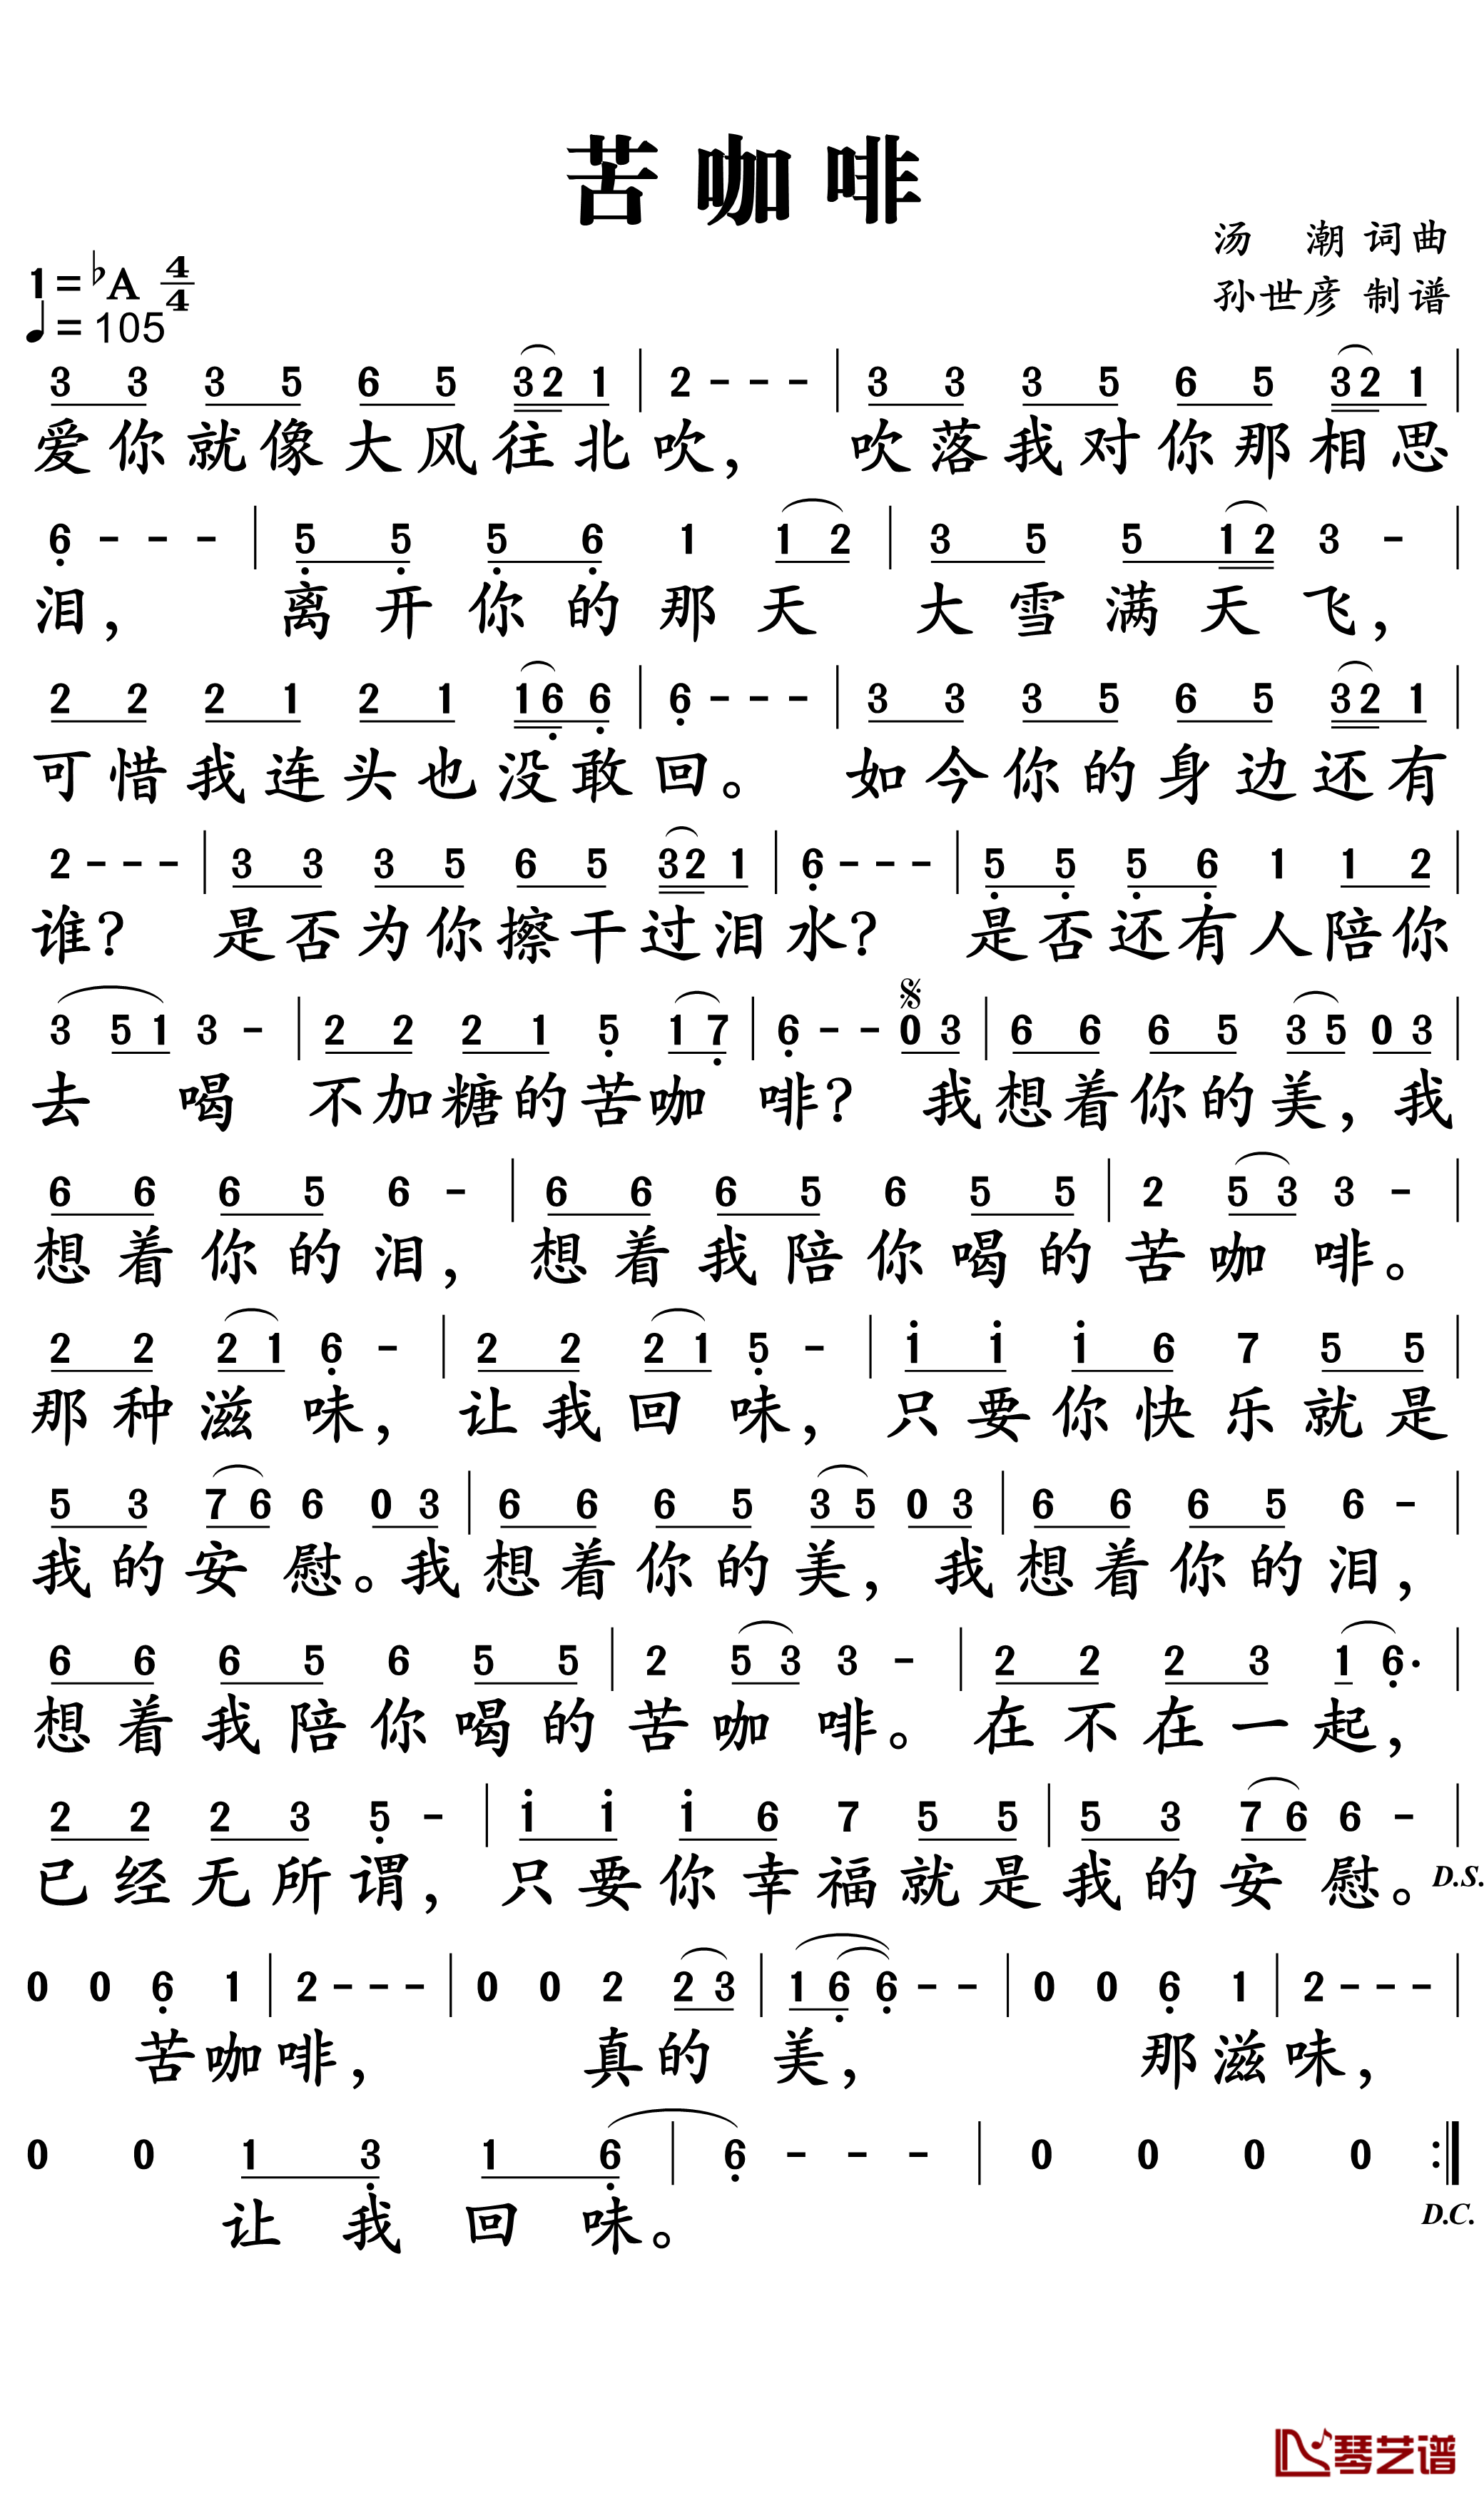 苦咖啡
汤 潮 词曲
孙世彦 制谱
1=♭A 4/4
♩=105
3 3 3 5 6 5 32 1 | 2 - - - | 3 3 3 5 6 5 32 1 |
爱你就像大风往北吹，吹落我对你那相思
6̣ - - - | 5̣ 5̣ 5̣ 6̣ 1 1 2 | 3 5 5 12 3 - |
泪，离开你的那天大雪满天飞，
2 2 2 1 2 1 16̣ 6̣ | 6̣ - - - | 3 3 3 5 6 5 32 1 |
可惜我连头也没敢回。如今你的身边还有
2 - - - | 3 3 3 5 6 5 32 1 | 6̣ - - - | 5̣ 5̣ 5̣ 6̣ 1 1 2 |
谁？是否为你擦干过泪水？是否还有人陪你
3 51 3 - | 2 2 2 1 5̣ 17̣ | 6̣ - - 0 3 | 6 6 6 5 35 0 3 |
去喝不加糖的苦咖啡？我想着你的美，我
6 6 6 5 6 - | 6 6 6 5 6 5 5 | 2 53 3 - |
想着你的泪，想着我陪你喝的苦咖啡。
2 2 21 6̣ - | 2 2 21 5̣ - | i i i 6 7 5 5 |
那种滋味，让我回味，只要你快乐就是
5 3 76 6 0 3 | 6 6 6 5 35 0 3 | 6 6 6 5 6 - |
我的安慰。我想着你的美，我想着你的泪，
6 6 6 5 6 5 5 | 2 53 3 - | 2 2 2 3 1 6̣· |
想着我陪你喝的苦咖啡。在不在一起，
2 2 2 3 5̣ - | i i i 6 7 5 5 | 5 3 76 6 - |
已经无所谓，只要你幸福就是我的安慰。D.S.
0 0 6̣ 1 | 2 - - - | 0 0 2 23 | 16̣ 6̣ - - | 0 0 6̣ 1 | 2 - - - |
苦咖啡，真的美，那滋味，
0 0 1 3̣ 1 6̣ | 6̣ - - - | 0 0 0 0 :|
让我回味。D.C.
琴艺谱